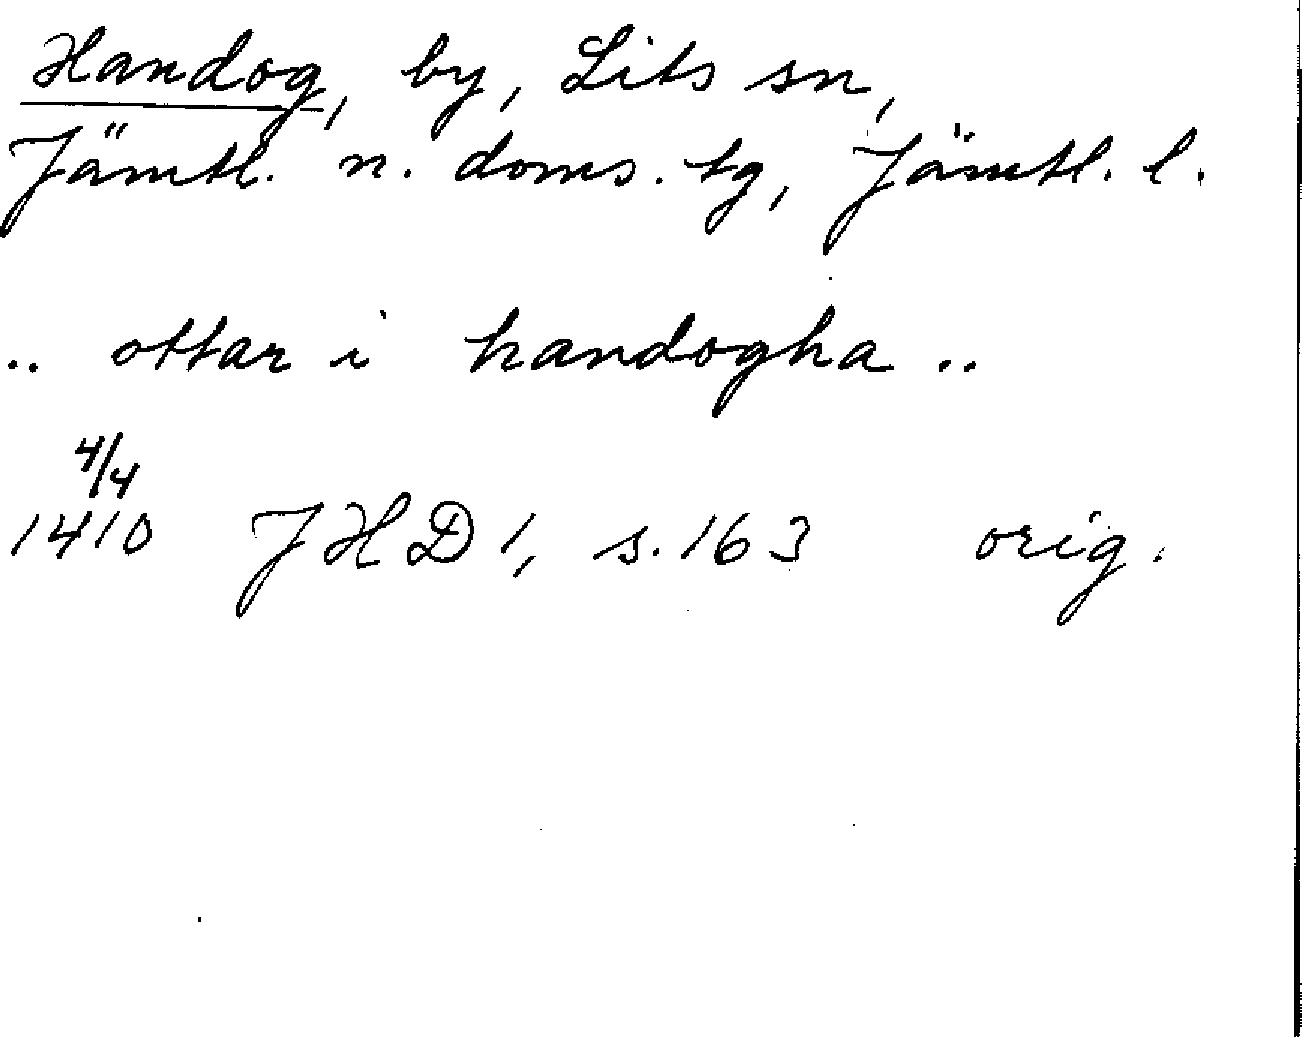 Handog, by, Lits sn,
Jämtl. n. doms. tg, Jämtl. l.
.. ottar i handogha ..
4/4
1410 JHD 1, s. 163 orig.